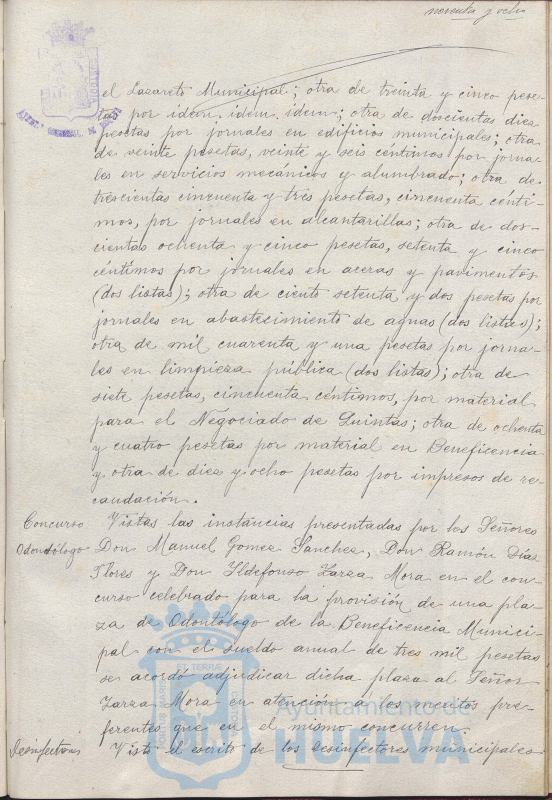 noventa y ocho
el Lazareto Municipal; otra de treinta y cinco pese-
tas por idem, idem, idem; otra de doscientas diez
pesetas por jornales en edificios municipales; otra
de veinte pesetas, veinte y seis céntimos por jorna-
les en servicios mecánicos y alumbrado; otra de
trescientas cincuenta y tres pesetas, cincuenta cénti-
mos, por jornales en alcantarillas; otra de dos-
cientas ochenta y cinco pesetas, setenta y cinco
céntimos por jornales en aceras y pavimentos
(dos listas); otra de ciento setenta y dos pesetas por
jornales en abastecimiento de aguas (dos listas);
otra de mil cuarenta y una pesetas por jorna-
les en limpieza pública (dos listas); otra de
siete pesetas, cincuenta céntimos, por material
para el Negociado de Quintas; otra de ochenta
y cuatro pesetas por material en Beneficencia
y otra de diez y ocho pesetas por impresos de re-
caudación.
Concurso
Odontólogo
Vistas las instancias presentadas por los Señores
Don Manuel Gomez Sanchez, Don Ramón Días
Flores y Don Ildefonso Zarza Mora en el con-
curso celebrado para la provisión de una pla-
za de Odontólogo de la Beneficencia Munici-
pal con el sueldo anual de tres mil pesetas
se acordó adjudicar dicha plaza al Señor
Zarza Mora en atención a los meritos pre-
ferentes que en el mismo concurren.
Desinfectores
Visto el escrito de los desinfectores municipales
Ayuntamiento de
HUELVA